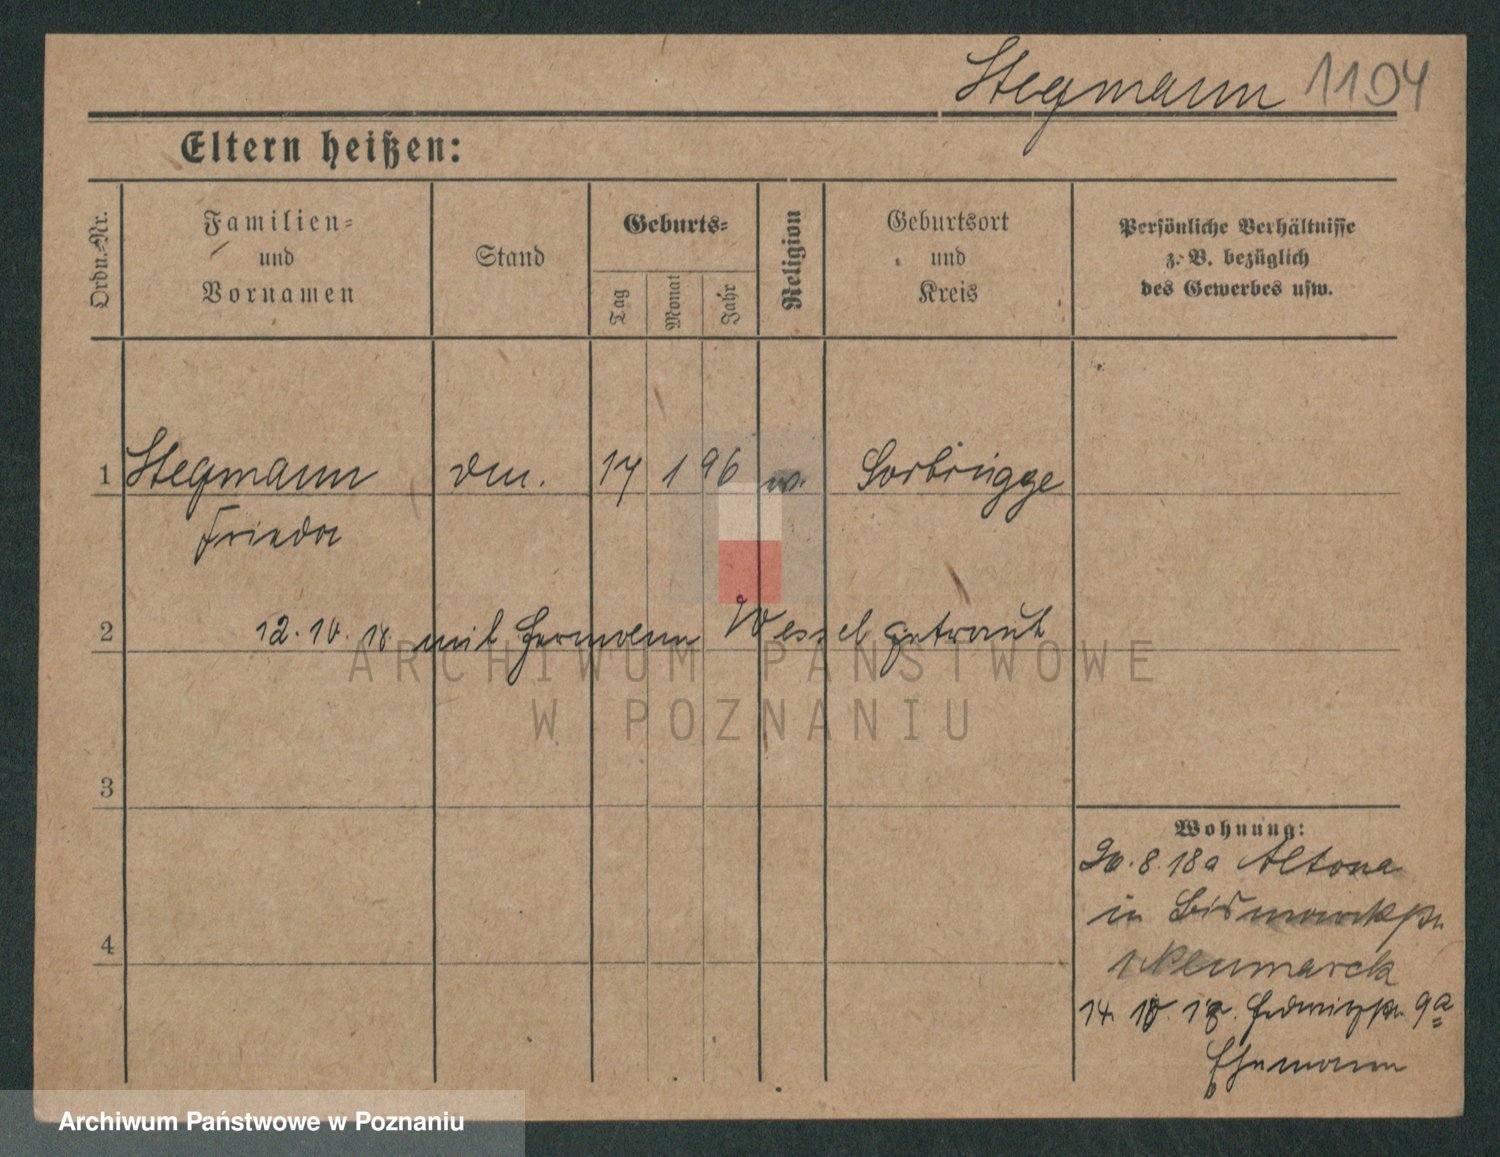 Stegmann 1194
Eltern heißen:
Ordn.-Nr.
Familien-
und
Vornamen
Stand
Geburts-
Tag
Monat
Jahr
Religion
Geburtsort
und
Kreis
Persönliche Verhältnisse
z. B. bezüglich
des Gewerbes usw.
1 Stegmann 17 1 96
Frieda
2 12.10.18. mit Hermann Wessel getraut
ARCHIWUM PAŃSTWOWE
W POZNANIU
3
Wohnung:
20.8.18 a Altona
in Bismarckstr.
4
1 Neumarck
14. 10. 18. Hedwigstr. 9a
Ehemann
Archiwum Państwowe w Poznaniu